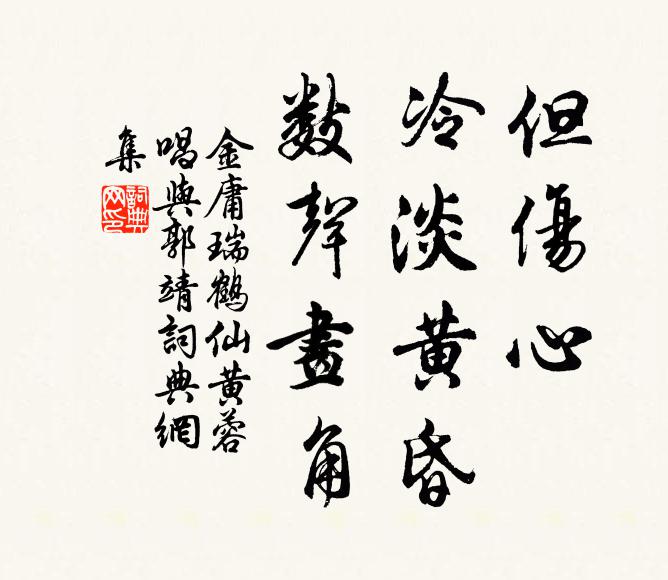 但傷心
冷淡黄昏
數聲畫角
金庸瑞鶴仙黄蓉
唱與郭靖詞典網
集
詞典網印